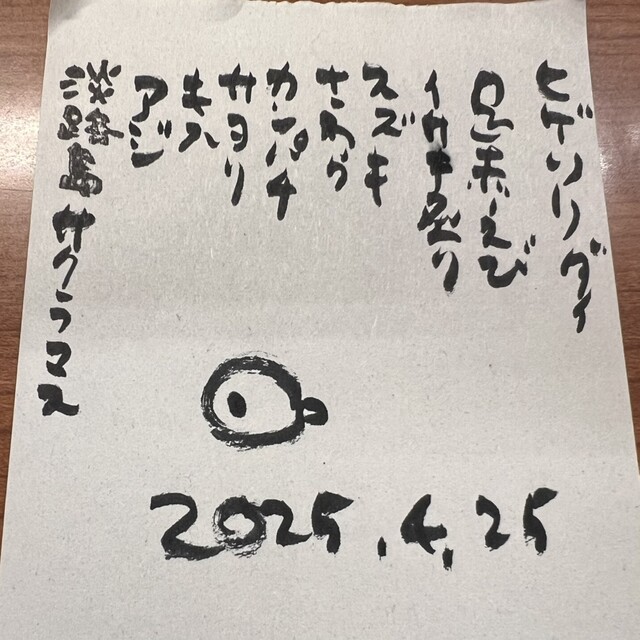 ヒゲソリダイ
足赤えび
スズキ
さわら
カンパチ
サヨリ
キス
アジ
淡路島サクラマス
2025.4.25